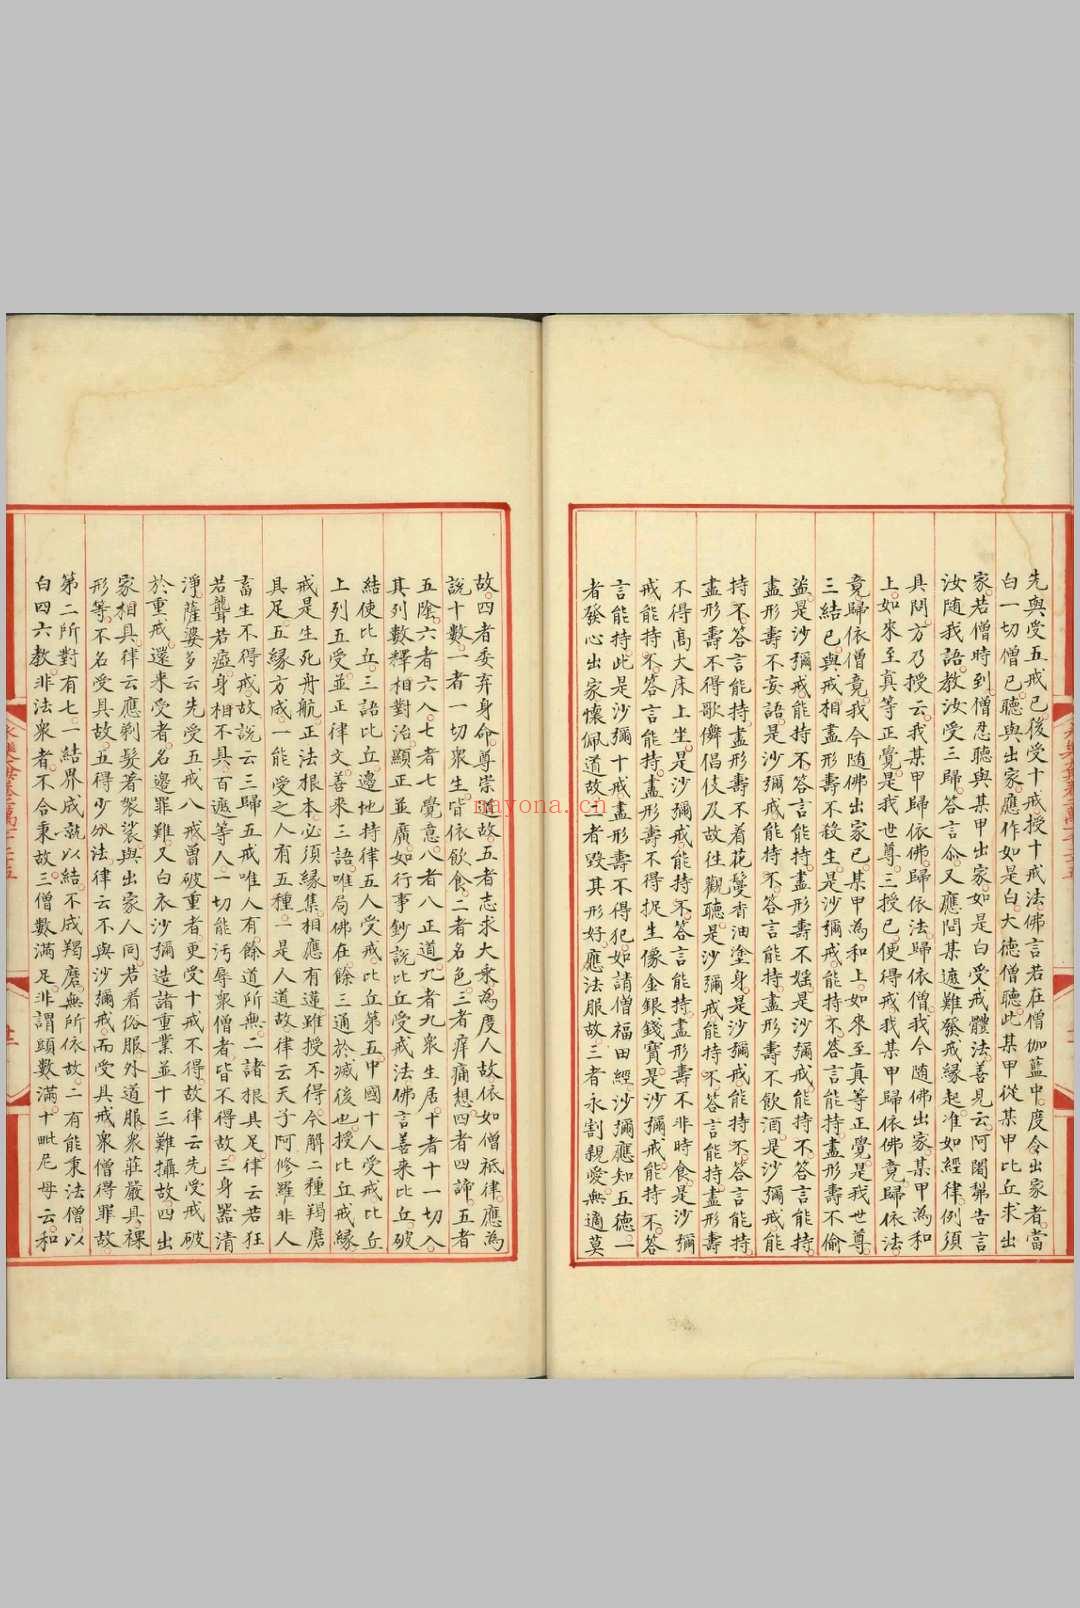 先與受五戒已後受十戒授十戒法佛言若在僧伽藍中度令出家者當
白一切僧已聽與出家應作如是白大德僧聽此某甲從某甲比丘求出
家若僧時到僧忍聽與某甲出家如是白受戒體法善見云阿闍棃告言
汝隨我語教汝受三歸答言尒又應問某遮難發戒縁起准如經律例須
具問方乃授云我某甲歸依佛歸依法歸依僧我今隨佛出家某甲為和
上如來至真等正覺是我世尊三授已便得戒我某甲歸依佛竟歸依法
竟歸依僧竟我今隨佛出家已某甲為和上如來至真等正覺是我世尊
三結已與戒相盡形壽不殺生是沙彌戒能持不答言能持盡形壽不偷
盗是沙彌戒能持不答言能持盡形壽不婬是沙彌戒能持不答言能持
盡形壽不妄語是沙彌戒能持不答言能持盡形壽不飲酒是沙彌戒能
持不答言能持盡形壽不着花鬘香油塗身是沙彌戒能持不答言能持
盡形壽不得歌儛倡伎及故往觀聽是沙彌戒能持不答言能持盡形壽
不得髙大床上坐是沙彌戒能持不答言能持盡形壽不非時食是沙彌
戒能持不答言能持盡形壽不得捉生像金銀錢寳是沙彌戒能持不答
言能持此是沙彌十戒盡形壽不得犯如請僧福田經沙彌應知五徳一
者發心出家懷佩道故二者毀其形好應法服故三者永割親愛無適莫
故四者委弃身命尊崇道故五者志求大乗為度人故依如僧祇律應為
說十數一者一切衆生皆依飲食二者名色三者痒痛想四者四諦五者
五陰六者六入七者七覺意八者八正道九者九衆生居十者十一切入
其列數釋相對治顯正並廣如行事鈔說比丘受戒法佛言善来比丘破
結使比丘三語比丘邊地持律五人受戒比丘第五中國十人受戒比丘
上列五受並正律文善来三語唯局佛在餘三通於滅後也授比丘戒縁
戒是生死舟航正法根本必須縁集相應有違雖授不得今解二種羯磨
具足五縁方成一能受之人有五種一是人道故律云天子阿修羅非人
畜生不得戒故說云三歸五戒唯人有餘道所無二諸根具足律云若狂
若聾若瘂身相不具百遮等人一切能汚辱衆僧者皆不得故三身器清
淨薩婆多云先受五戒八戒曽破重者更受十戒不得故律云先受戒破
於重戒還来受者名邉罪難又白衣沙彌造諸重業並十三難攝故四出
家相具律云應剃髮着袈裟與出家人同若着俗服外道服衆莊嚴具裸
形等不名受具故五得少分法律云不與沙彌戒而受具戒衆僧得罪故
第二所對有七一結界成就以結不成羯磨無所依故二有能秉法僧以
白四六教非法衆者不合秉故三僧數滿足非謂頭數滿十毗尼母云和
nayona.cn